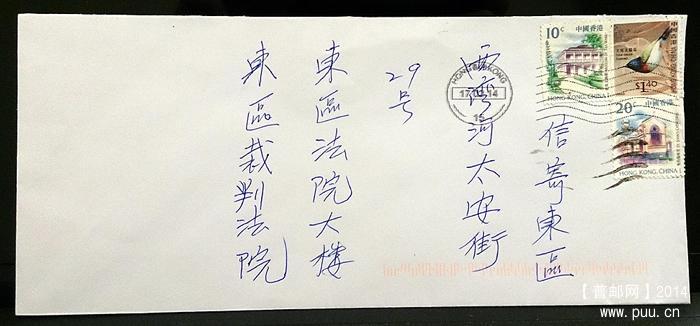 信寄東區
西湾河太安街
29号
東區法院大樓
東區裁判法院
10c
中國香港
HONG KONG, CHINA
中國香港
$1.40
20c
中國香港
HONG KONG, CHINA
HONG KONG
15
【普邮网】2014
www.puu.cn